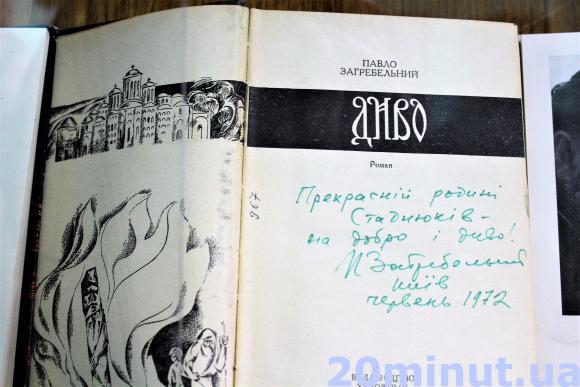 ПАВЛО
ЗАГРЕБЕЛЬНИЙ
ДИВО
Роман
Прекрасній родині
Стаднюків –
на добро і диво!
П Загребельний
Київ
червень 1972
796
20minut.ua